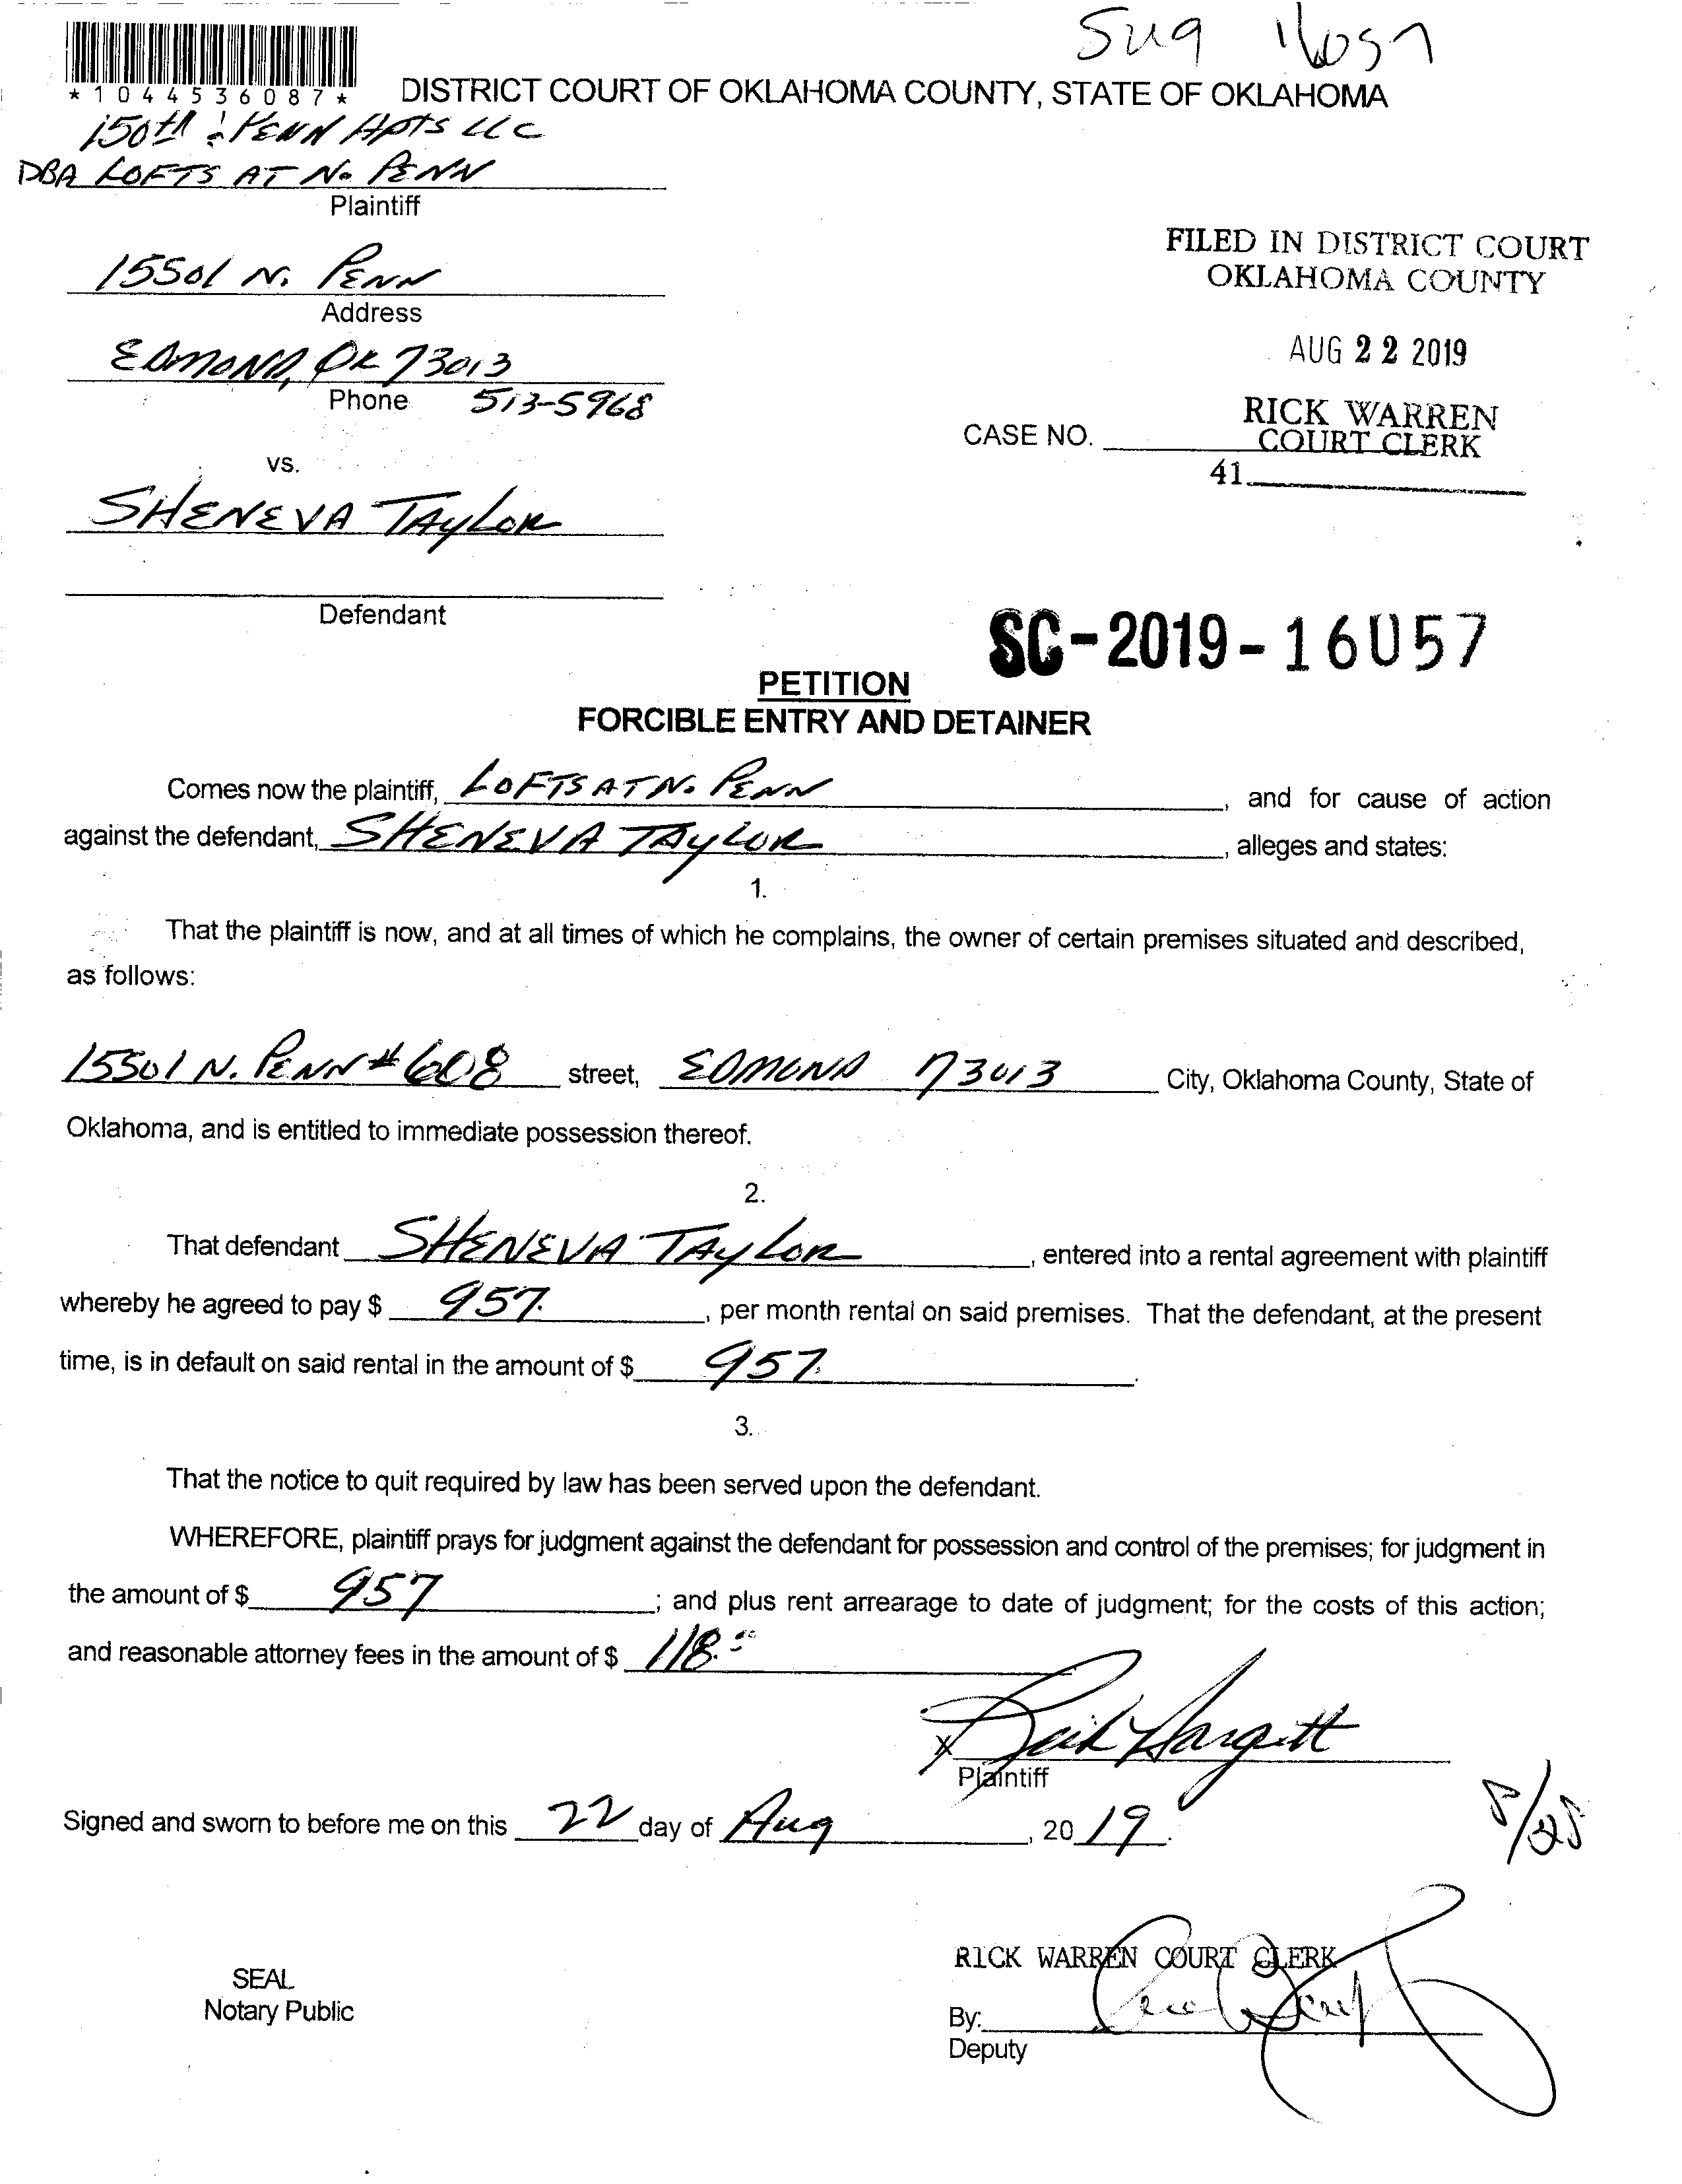 *1044536087*
DISTRICT COURT OF OKLAHOMA COUNTY, STATE OF OKLAHOMA
150th & PENN Apts LLC
DBA LOFTS AT N. PENN
Plaintiff
15501 N. PENN
Address
EDMOND, OK 73013
Phone 513-5968
vs.
SHENEVA TAYLOR
Defendant
FILED IN DISTRICT COURT
OKLAHOMA COUNTY
AUG 22 2019
RICK WARREN
COURT CLERK
CASE NO.
41
SC-2019-16057
PETITION
FORCIBLE ENTRY AND DETAINER
Comes now the plaintiff, LOFTS AT N. PENN, and for cause of action
against the defendant, SHENEVA TAYLOR, alleges and states:
1.
That the plaintiff is now, and at all times of which he complains, the owner of certain premises situated and described,
as follows:
15501 N. PENN #608 street, EDMOND 73013 City, Oklahoma County, State of
Oklahoma, and is entitled to immediate possession thereof.
2.
That defendant SHENEVA TAYLOR, entered into a rental agreement with plaintiff
whereby he agreed to pay $ 957., per month rental on said premises. That the defendant, at the present
time, is in default on said rental in the amount of $ 957.
3.
That the notice to quit required by law has been served upon the defendant.
WHEREFORE, plaintiff prays for judgment against the defendant for possession and control of the premises; for judgment in
the amount of $ 957; and plus rent arrearage to date of judgment; for the costs of this action;
and reasonable attorney fees in the amount of $ 118.
X
Plaintiff
Signed and sworn to before me on this 22 day of Aug, 2019.
RICK WARREN COURT CLERK
SEAL
Notary Public
By:
Deputy